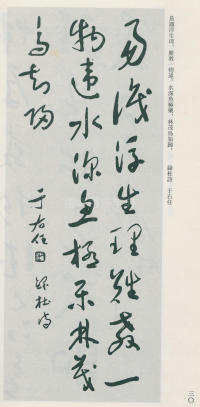 易識浮生理難教一
物違水深魚極樂林茂
鳥知歸
于右任 錄杜詩
易識浮生理,難教一物違。水深魚極樂,林茂鳥知歸。 錄杜詩 于右任
三〇